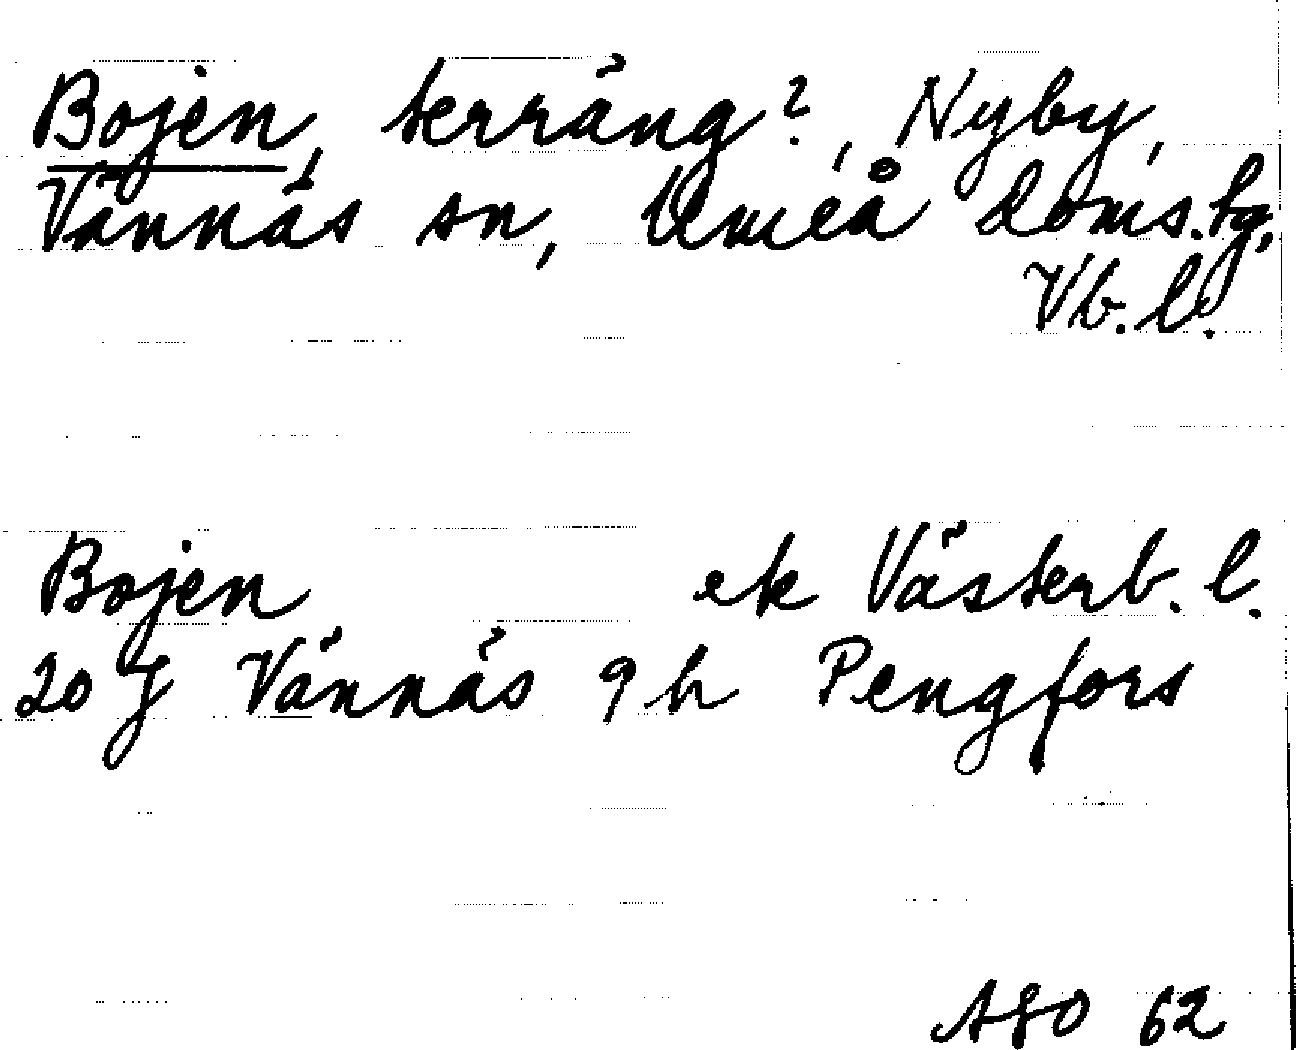 Bojen, terräng?, Nyby,
Vännäs sn, Umeå doms.tg,
Vb. l.
Bojen ek Västerb. l.
20 J Vännäs 9 h Pengfors
ASO 62